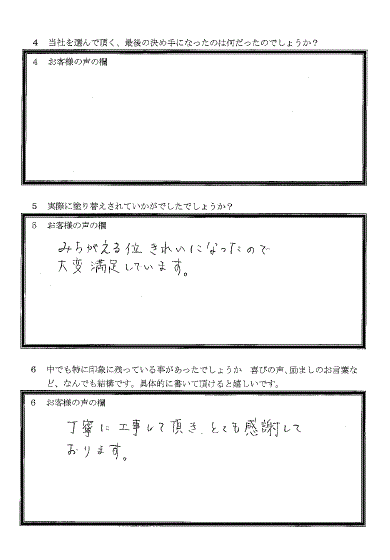 4 当社を選んで頂く、最後の決め手になったのは何だったのでしょうか？
4 お客様の声の欄
5 実際に塗り替えされていかがでしたでしょうか？
5 お客様の声の欄
みちがえる位 きれいになったので
大変満足しています。
6 中でも特に印象に残っている事があったでしょうか 喜びの声、励ましのお言葉な
ど、なんでも結構です。具体的に書いて頂けると嬉しいです。
6 お客様の声の欄
丁寧に工事して頂き、とても感謝して
おります。